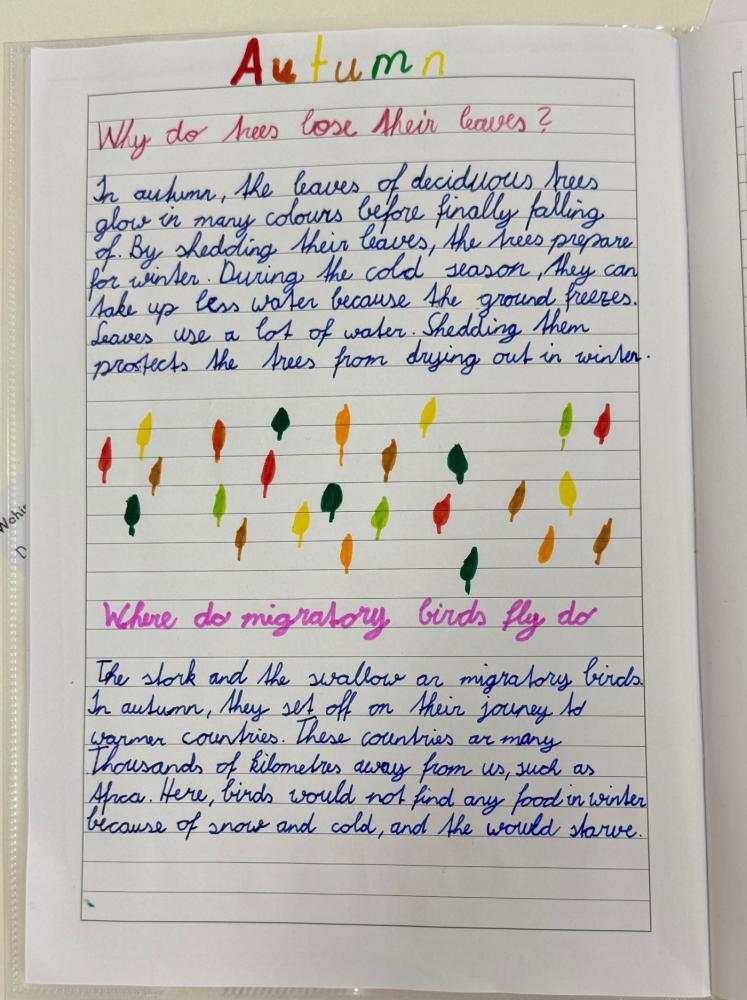 Autumn
Why do trees lose their leaves?
In autumn, the leaves of deciduous trees
glow in many colours before finally falling
of. By shedding their leaves, the trees prepare
for winter. During the cold season, they can
take up less water because the ground freezes.
Leaves use a lot of water. Shedding them
protects the trees from drying out in winter.
Where do migratory birds fly do
The stork and the swallow ar migratory birds.
In autumn, they set off on their jouney to
warmer countries. These countries ar many
Thousands of kilometres away from us, such as
Africa. Here, birds would not find any food in winter
because of snow and cold, and the would starve.